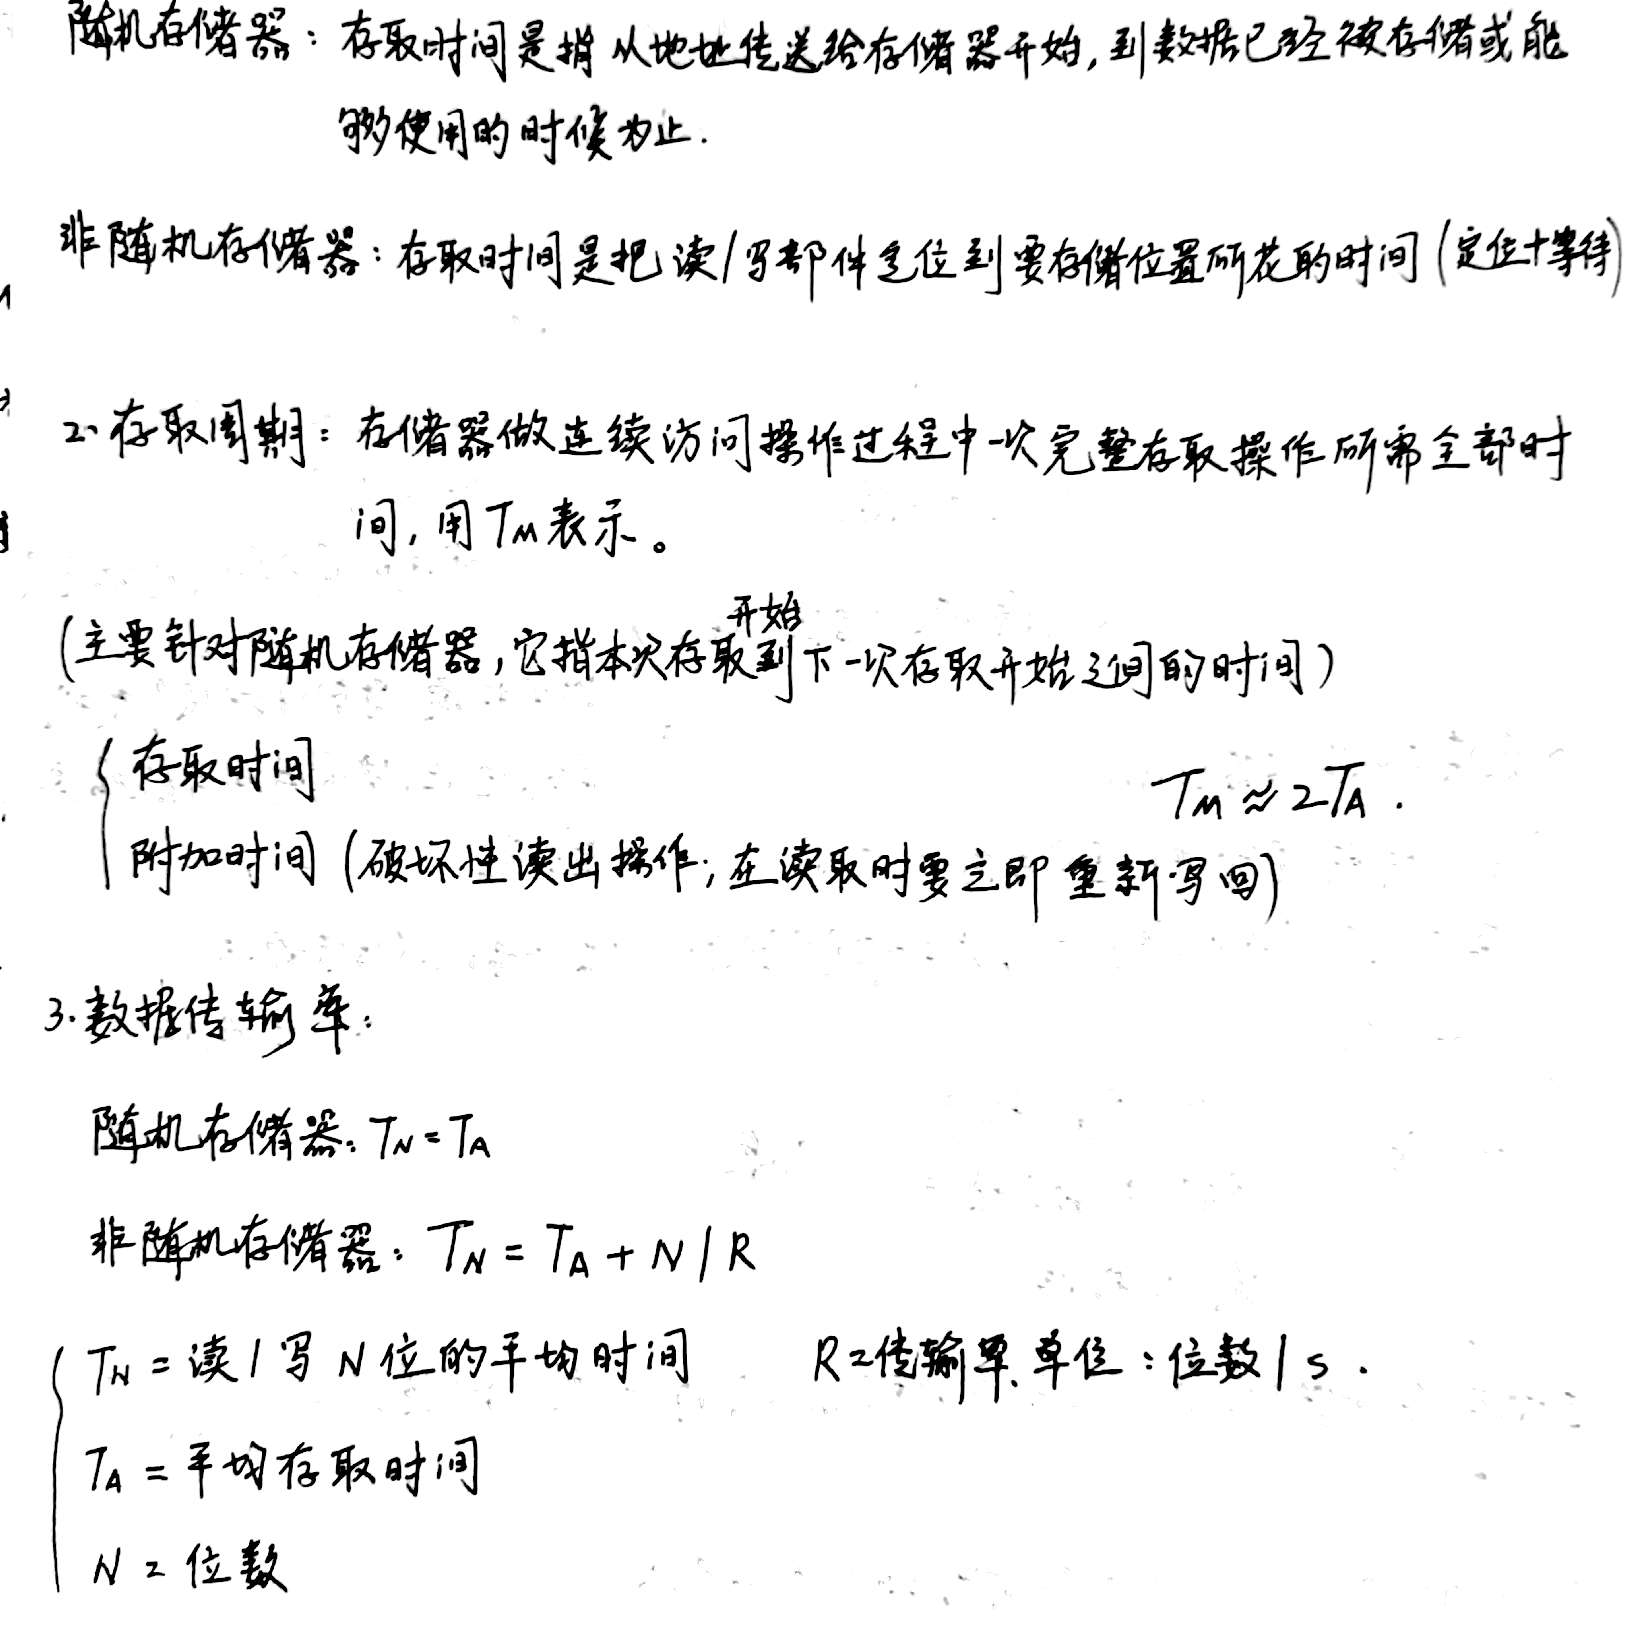 随机存储器：存取时间是指从地址传送给存储器开始，到数据已经被存储或能
够使用的时候为止.
非随机存储器：存取时间是把读/写部件定位到要存储位置所花的时间（定位+等待）
2. 存取周期：存储器做连续访问操作过程中一次完整存取操作所需全部时
间，用TM表示。
开始
（主要针对随机存储器，它指本次存取到下一次存取开始之间的时间）
存取时间
TM≈2TA.
附加时间（破坏性读出操作；在读取时要立即重新写回）
3.数据传输率：
随机存储器：TN=TA
非随机存储器：TN=TA+N/R
TN=读/写N位的平均时间 R=传输率.单位：位数/s.
TA=平均存取时间
N=位数